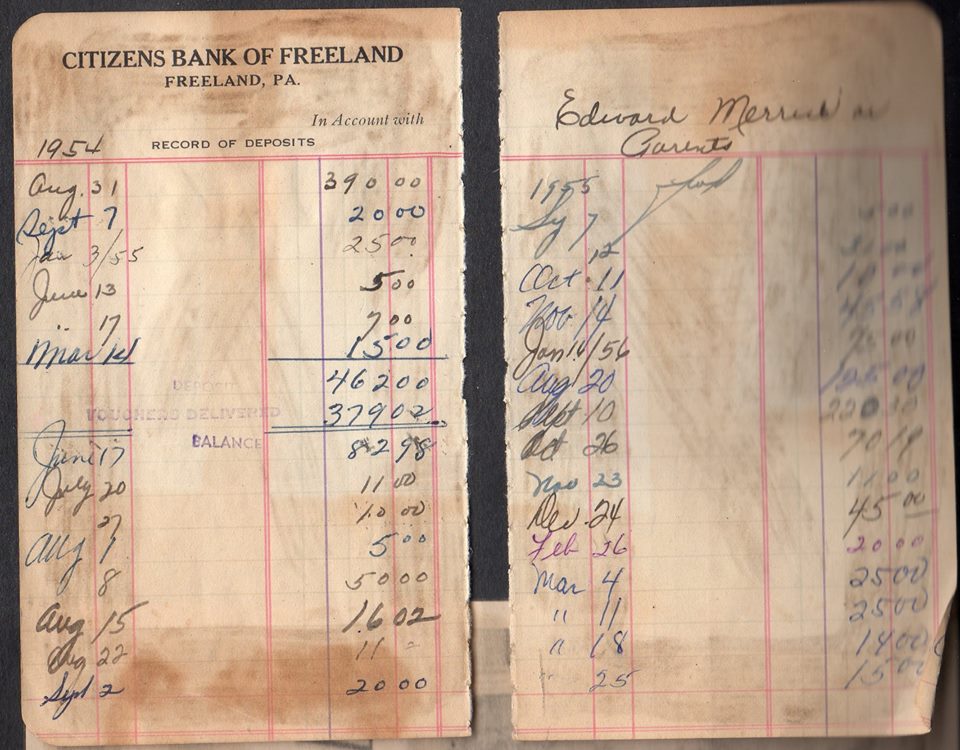 CITIZENS BANK OF FREELAND
FREELAND, PA.
In Account with
1954 RECORD OF DEPOSITS
Aug. 31 390 00
Sept 7 20 00
Jan 3/55 25 00
June 13 5 00
" 17 7 00
Mar 14 15 00
DEPOSIT 462 00
VOUCHERS DELIVERED 379 02
BALANCE
June 17 82 98
July 20 11 00
27 10 00
Aug 1 5 00
8 50 00
Aug 15 16 02
Aug 22 11 -
Sept 2 20 00
Edward Merrick or
Parents
1955
7
12
Oct 11
Nov 14
Jan 14/56
Aug 20
Sept 10
Oct 26 70 19
Nov 23 11 00
Dec 24 45 00
Feb 26 20 00
Mar 4 25 00
" 11 25 00
" 18 14 00
25 15 00